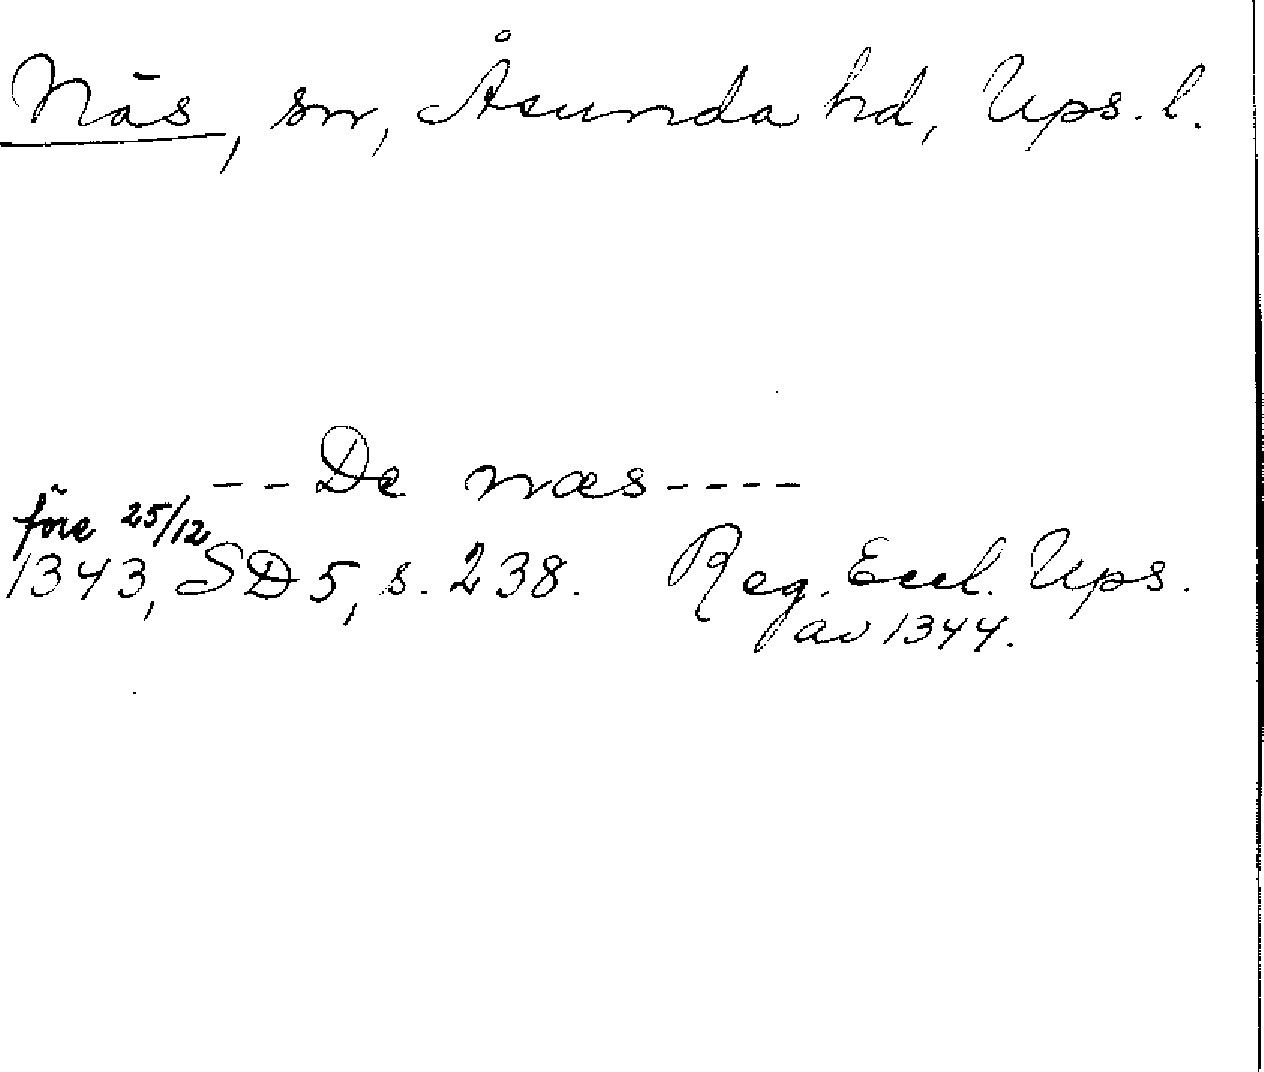 Näs, sn, Åsunda hd, Ups. l.
--De næs----
före 25/12
1343, SD 5, s. 238. Reg. Eccl. Ups.
av 1344.